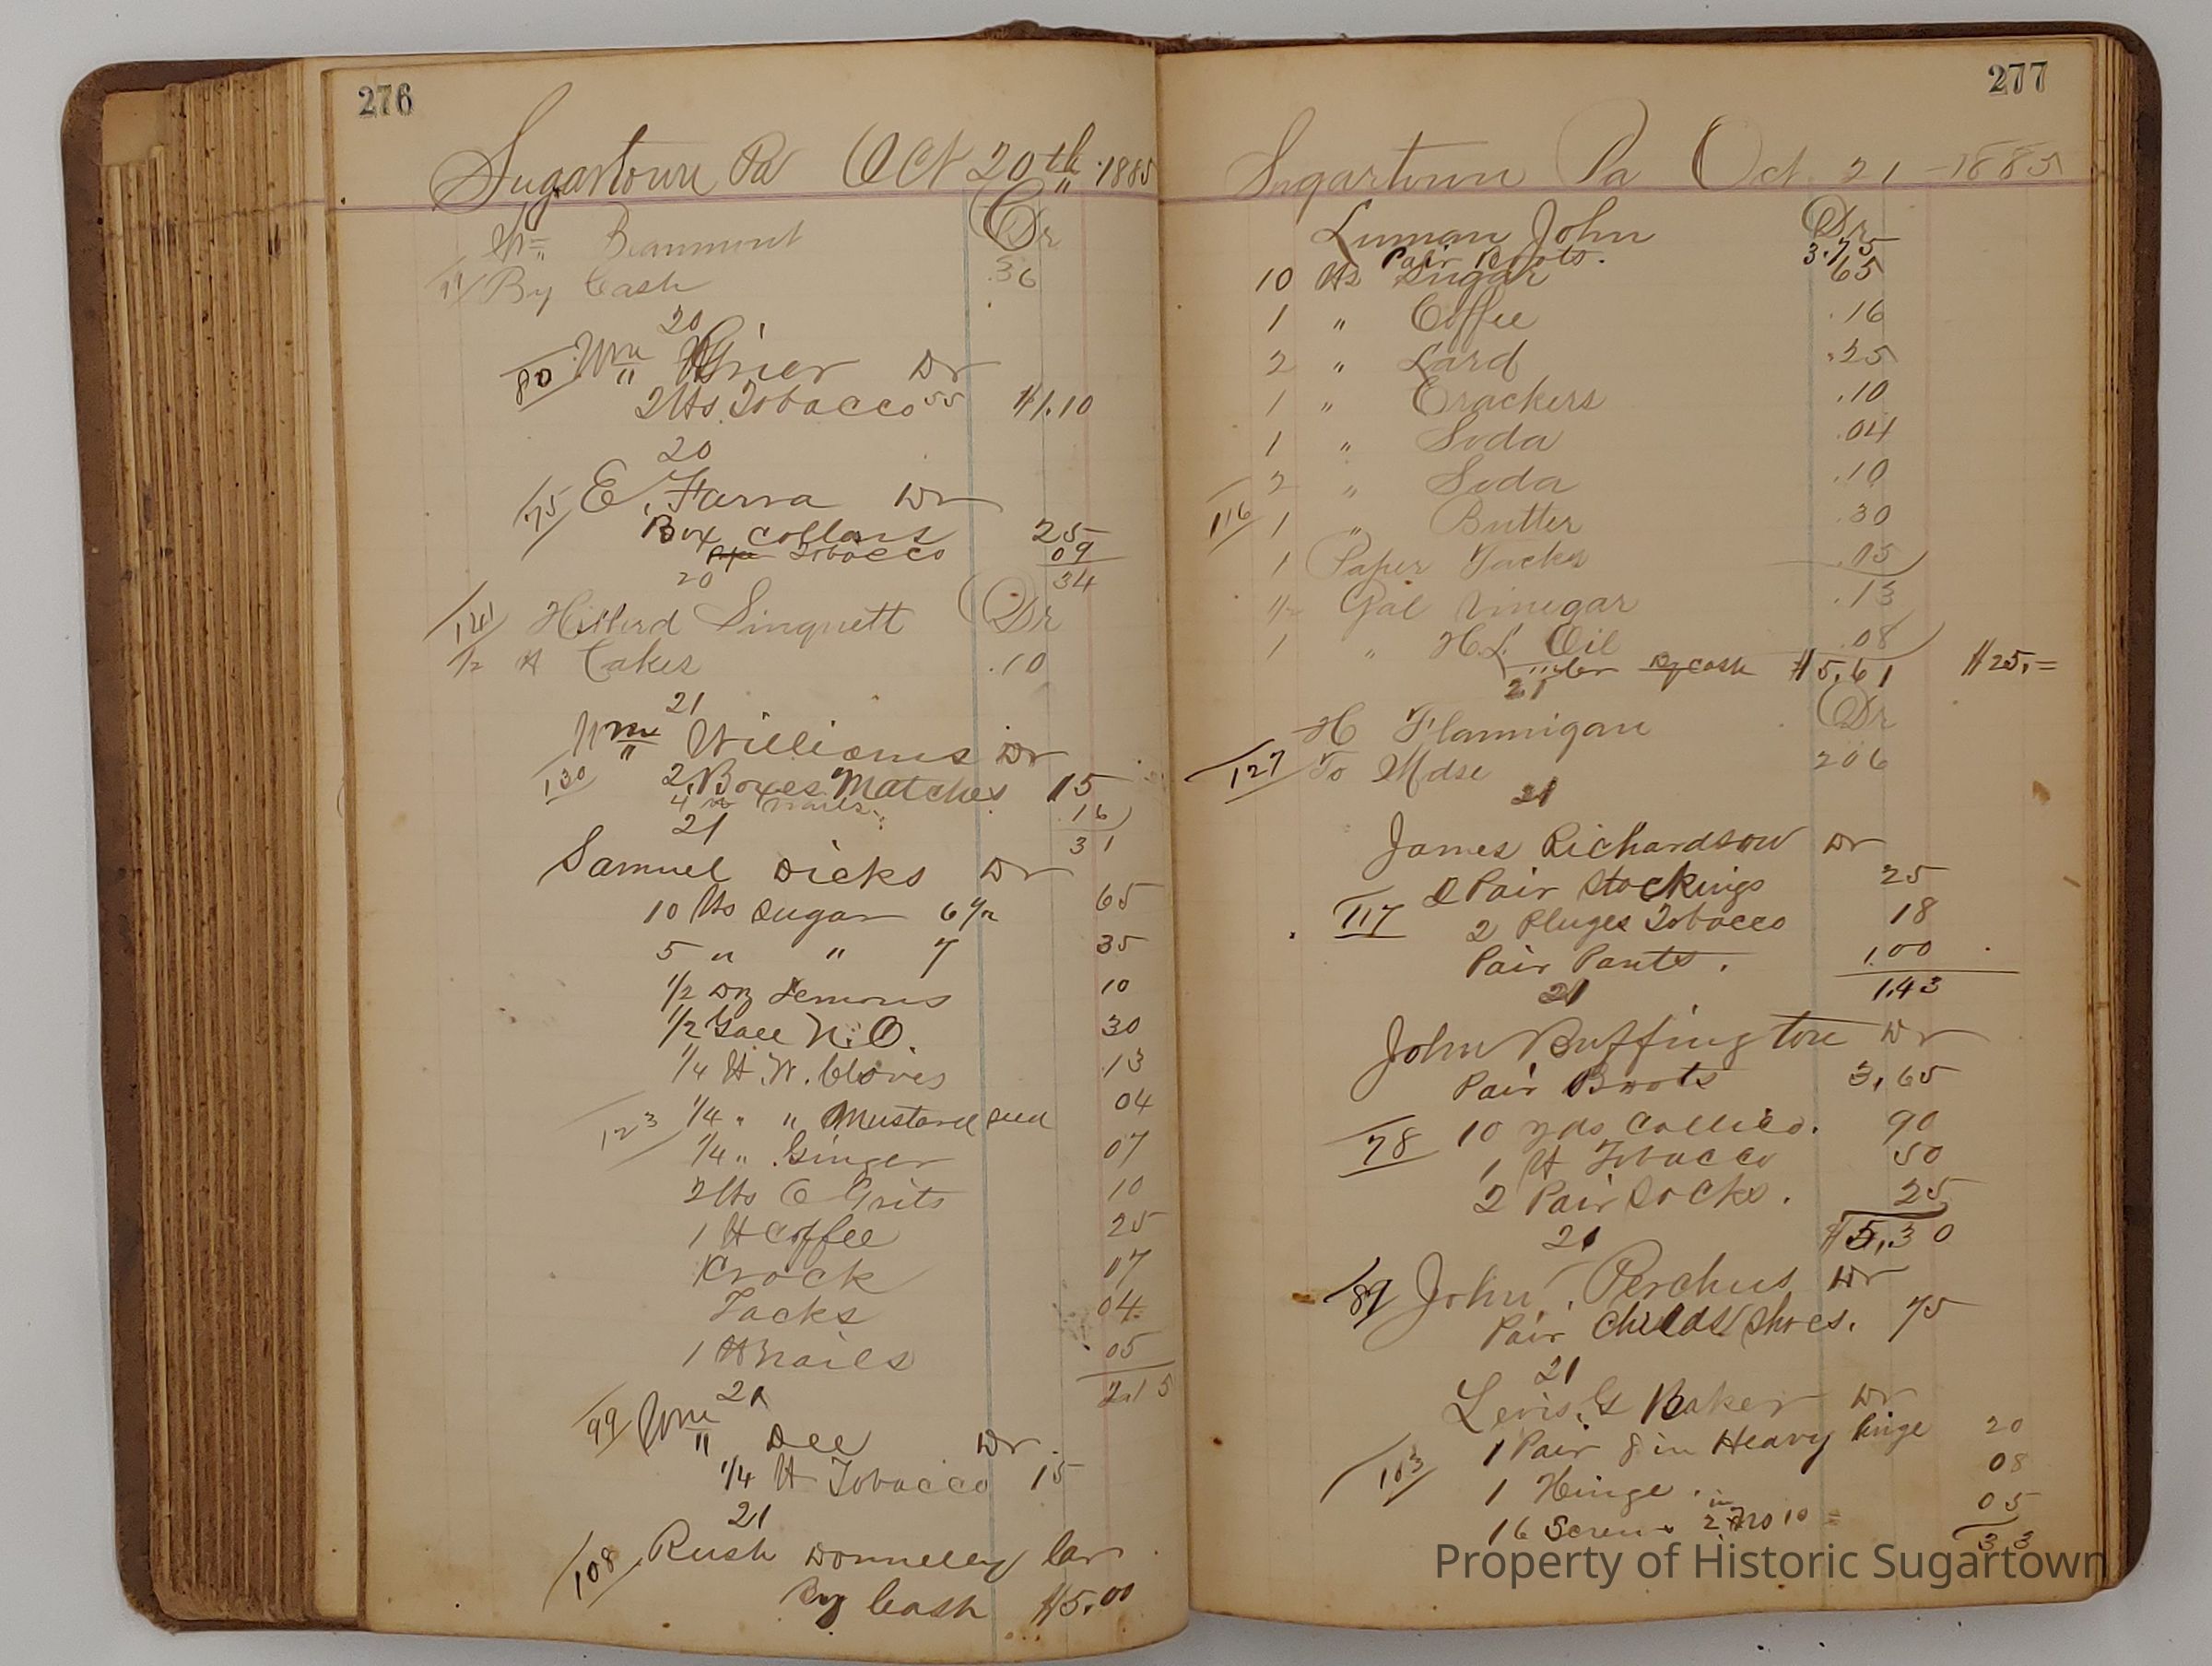 276
Sugartown Pa Oct 20th 1885
Wm Beaumont Dr
By Cash .36
20
80 Wm Grier Dr
2 lbs Tobacco 55 $1.10
20
75 E. Farra Dr
Box collars 25
Tobacco 09
20 34
Hillerd Singuett Dr
1/2 lb Cakes .10
21
Wm Williams Dr
130 2 Boxes Matches 15
4 lb nails 16
21 31
Samuel Dicks Dr
10 lbs Sugar 6 1/2 65
5 " " 7 35
1/2 Dz Lemons 10
1/2 Gall N.O. 30
1/4 lb W. Cloves 13
123 1/4 " " Mustard seed 04
1/4 " Ginger 07
2 lbs C Grits 10
1 lb Coffee 25
Krock 07
Tacks 04
1 lb nails 05
21 2.15
99 Wm Dee Dr
1/4 lb Tobacco 15
21
108 Rush Donnelley Cr
By Cash $5.00
277
Sugartown Pa Oct. 21 - 1885
Luman John Dr
Pair Boots. 3.75
10 lbs Sugar 65
1 " Coffee .16
2 " Lard .25
1 " Crackers .10
1 " Soda .04
2 " Soda .10
116 1 " Butter .30
1 Paper Tacks .05
Gal Vinegar .13
1 " H.L. Oil .08
By cash $5.61 $25.=
21
H Flannigan Dr
127 To Mdse 206
21
James Richardson Dr
2 Pair Stockings 25
117 2 Pluges Tobacco 18
Pair Pants. 1.00
21 1.43
John Buffington Dr
Pair Boots 3.65
78 10 yds Callico. 90
1 lb Tobacco 50
2 Pair Socks. 25
21 $5.30
89 John Perchus Dr
Pair Childs Shoes. 75
21
Levis. G Baker Dr
1 Pair 8 in Heavy hinge 20
103 1 Hinge. 08
16 Screws 2 in No 10 = 05
33
Property of Historic Sugartown